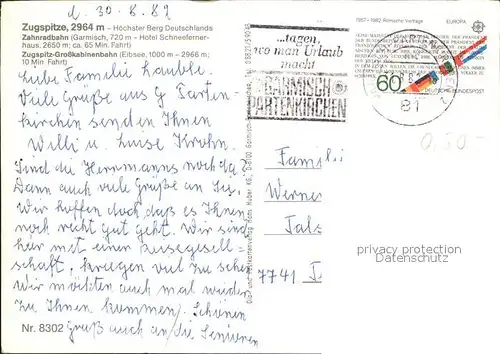 d. 30.8.82
Zugspitze, 2964 m – Höchster Berg Deutschlands
Zahnradbahn (Garmisch, 720 m - Hotel Schneeferner-
haus, 2650 m; ca. 65 Min. Fahrt)
Zugspitz-Großkabinenbahn (Eibsee, 1000 m – 2966 m;
10 Min Fahrt)
Liebe Familie
Viele Grüße aus G Parten-
kirchen senden Ihnen
Willi u. Luise Krohn.
Sind die Herrmanns noch da?
Dann auch viele Grüße an Sie.
Wir hoffen doch, daß es Ihnen
noch recht gut geht. Wir sind
hier mit einer Reisegesell-
schaft, kriegen viel zu sehen
Wir möchten auch mal wieder
zu Ihnen kommen. Schönen
Gruß auch an die Senioren
Nr. 8302
...tagen,
wo man Urlaub
macht
GARMISCH-
PARTENKIRCHEN
1957-1982 Römische Verträge
EUROPA
60
DEUTSCHE BUNDESPOST
81
0,50-
Famili
Werne
Tals
7741 T
privacy protection
Datenschutz